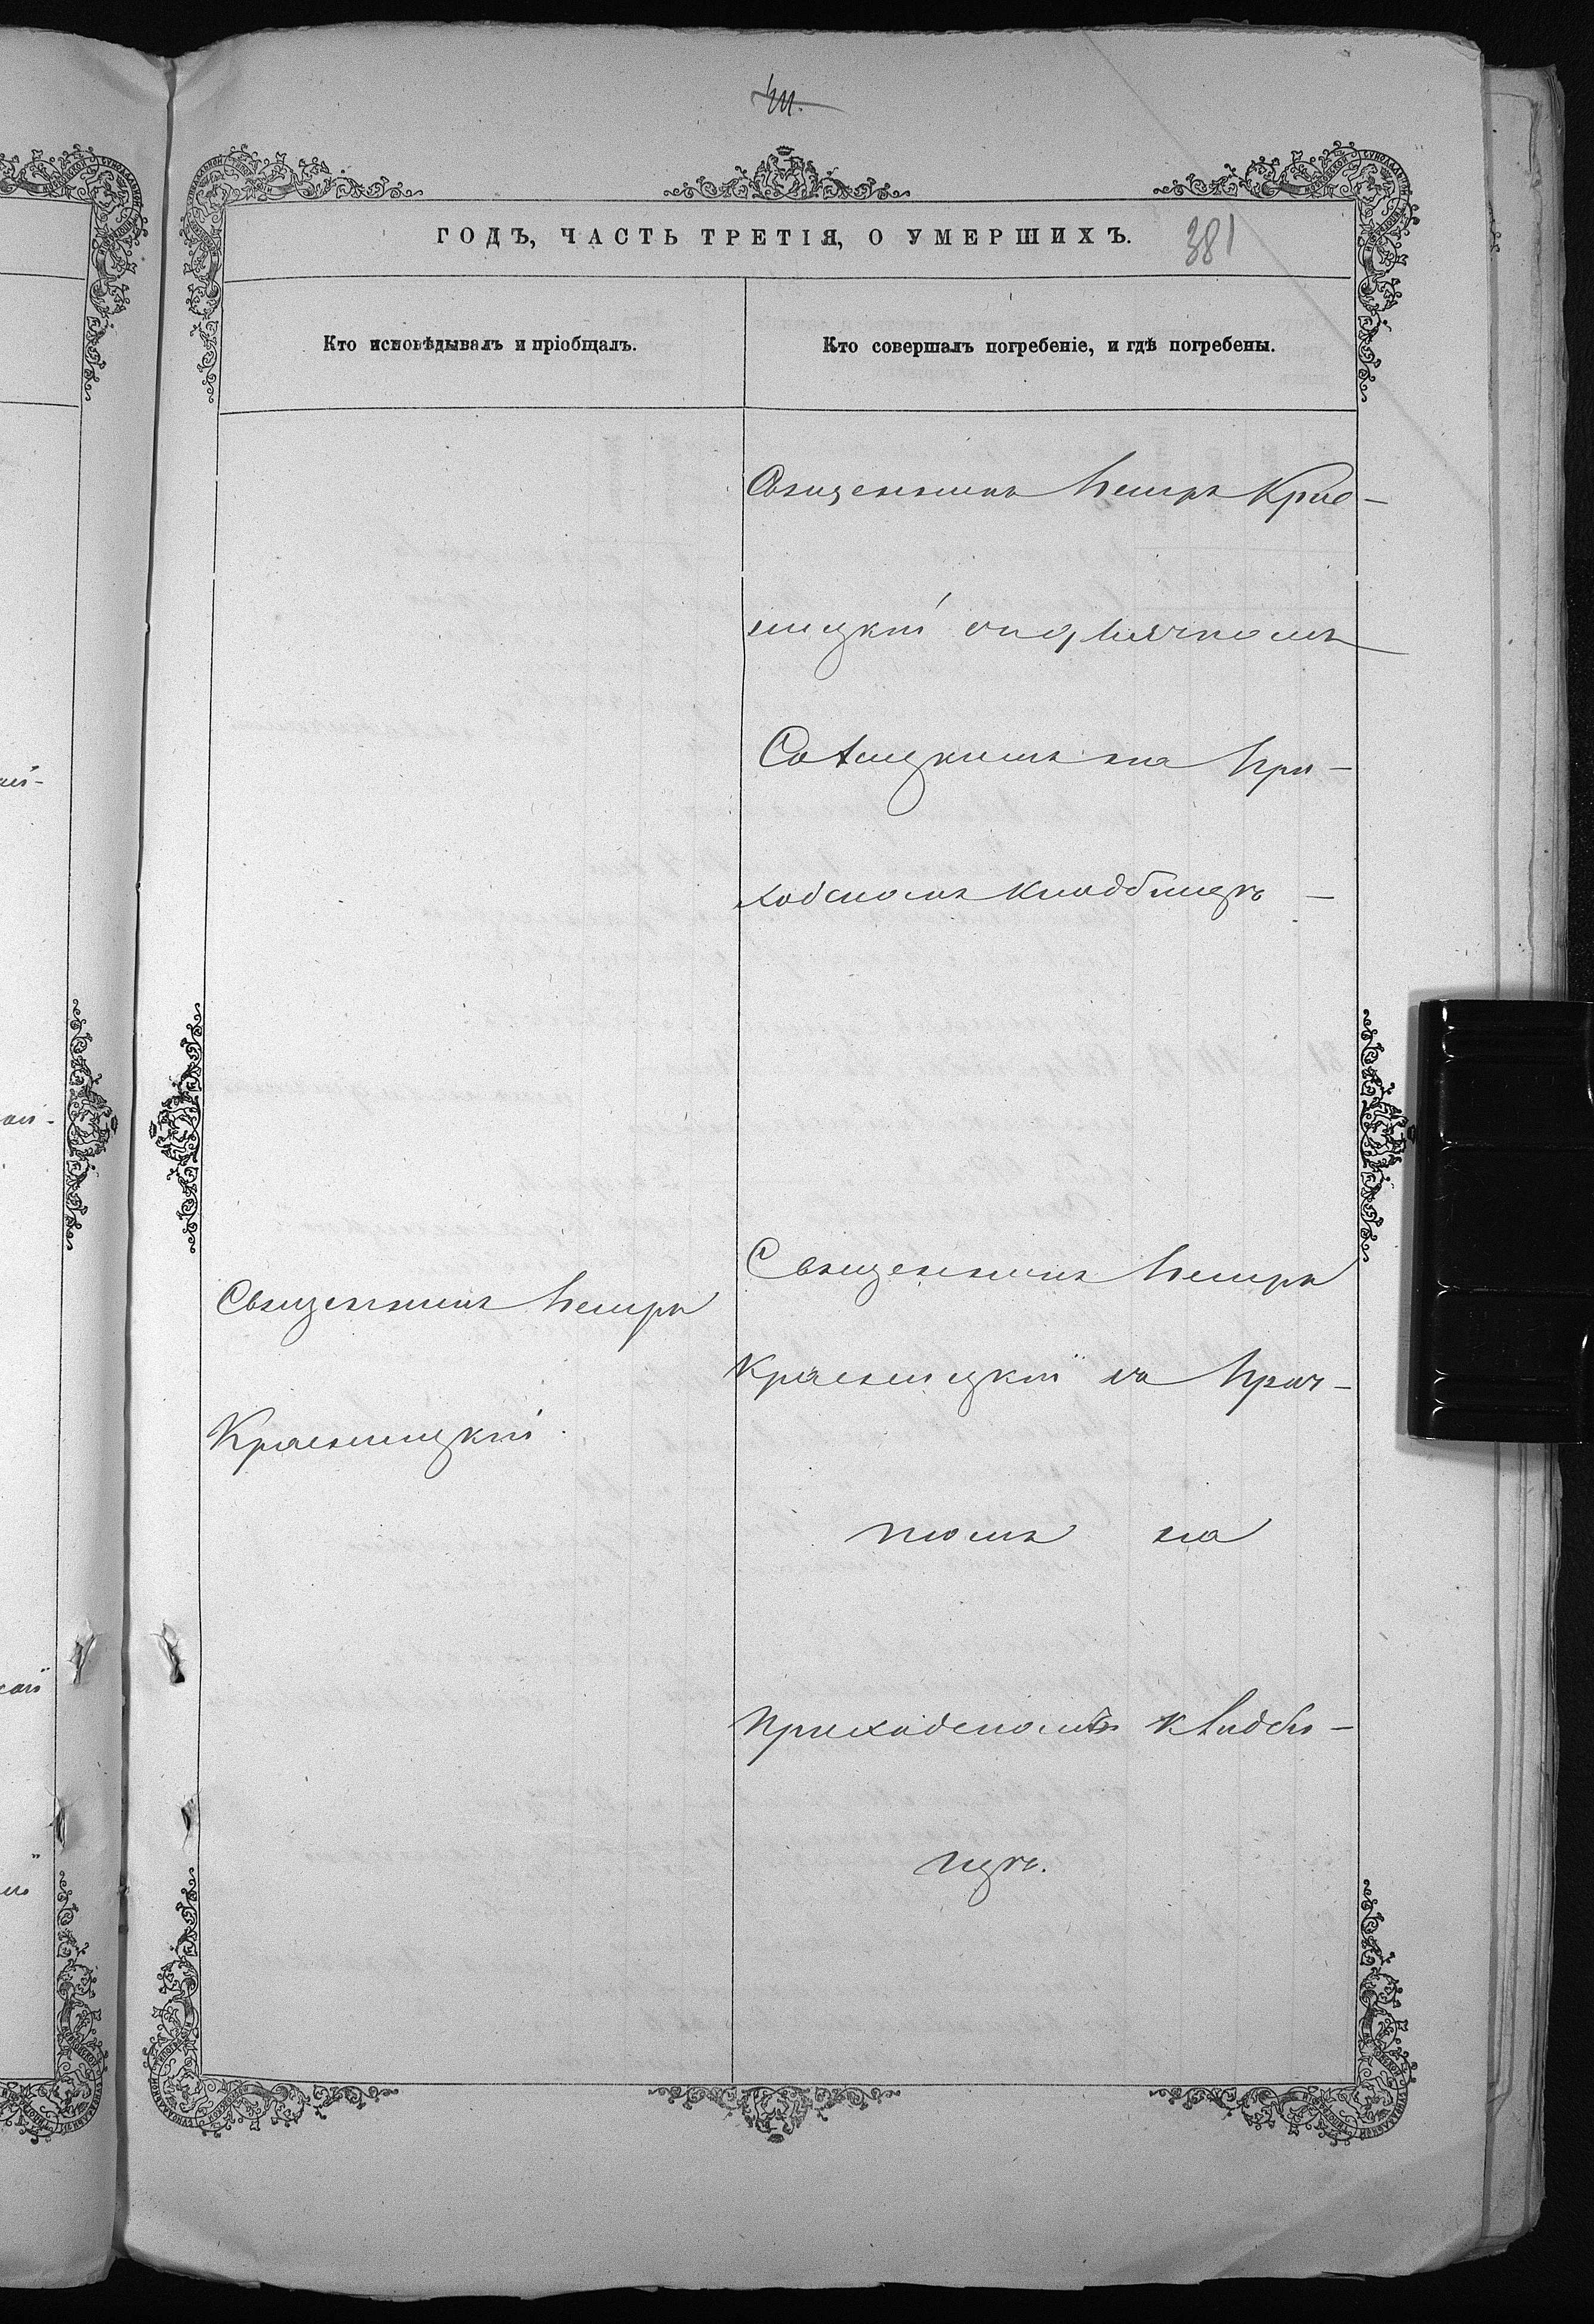 381
ГОДЪ, ЧАСТЬ ТРЕТІЯ, О УМЕРШИХЪ.
Кто исповѣдывалъ и пріобщалъ.
Кто совершалъ погребеніе, и гдѣ погребены.
Священникъ Петръ Крас-
ницкій съ
на при-
ходскомъ кладбищѣ -
Священникъ Петръ
Красницкій
Священникъ Петръ
Красницкій съ прич-
томъ на
приходскомъ кладби-
щѣ.